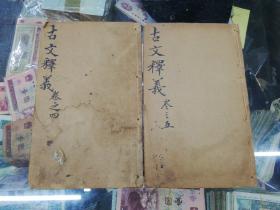 古文釋義
卷之四
古文釋義
卷之五